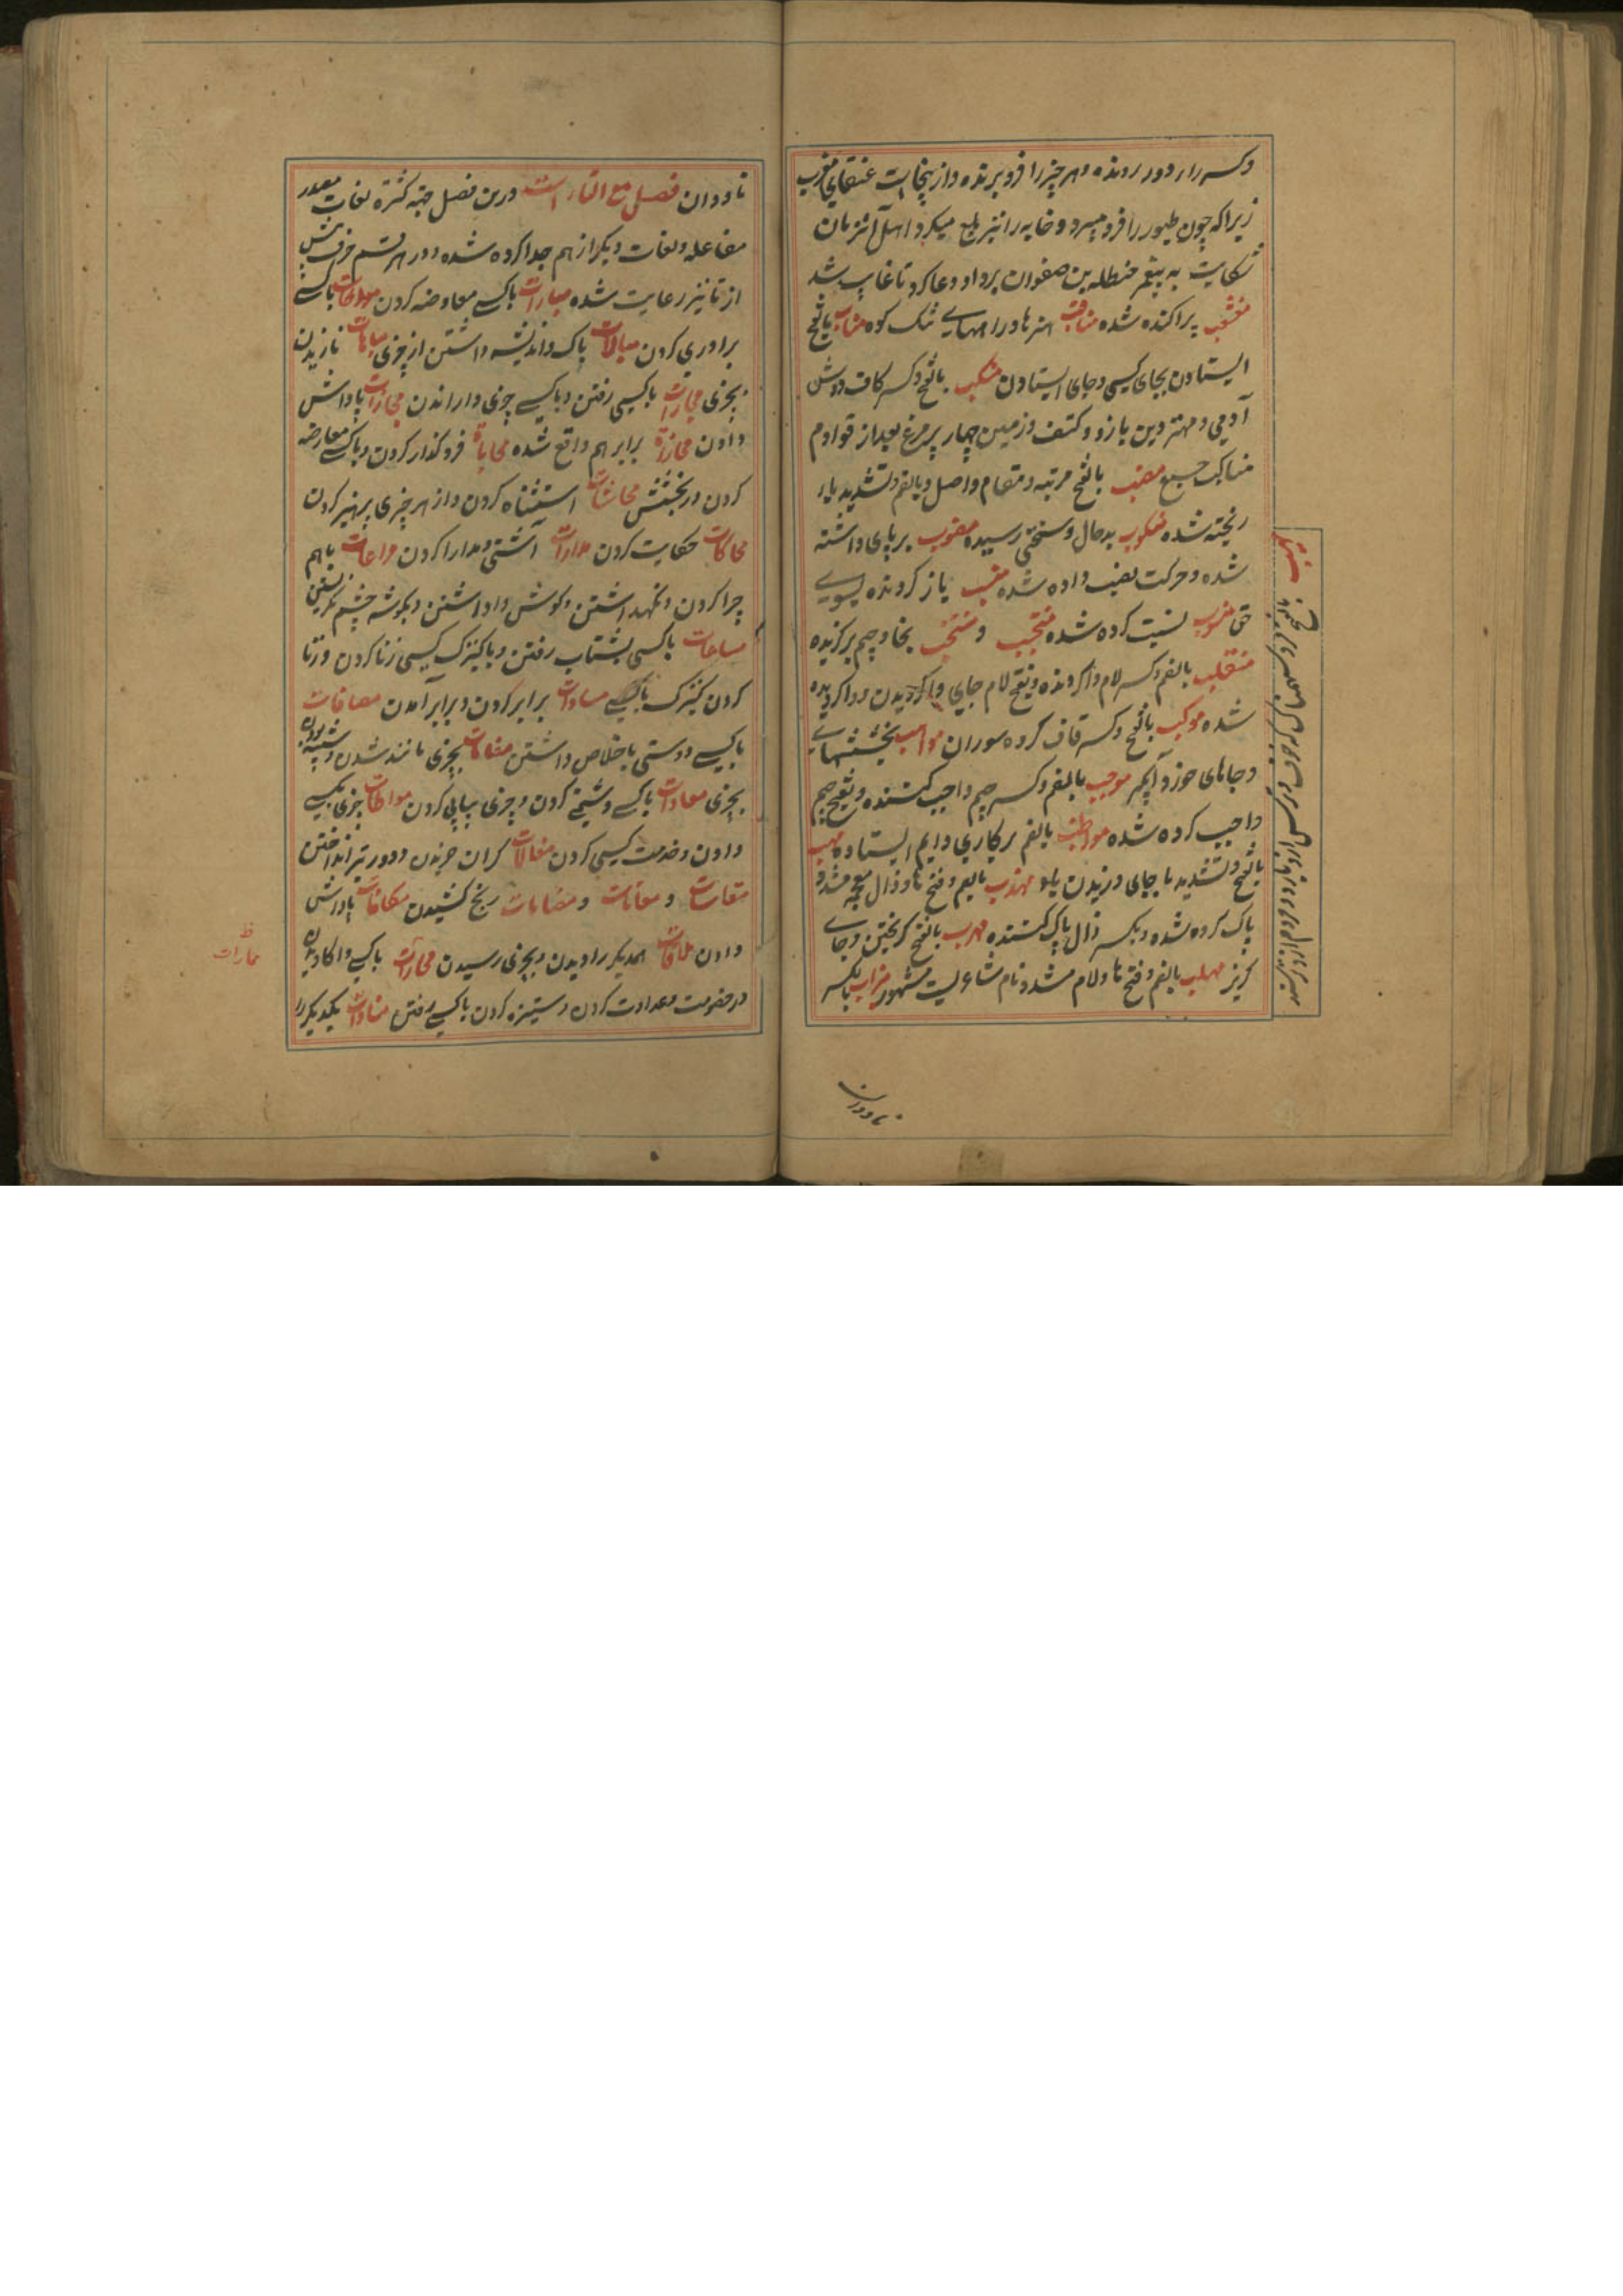 وکسر راء دور رونده و هر چیز را فرو برنده و از ینجاست عنقای مغرب
زیراکه چون طیور را فرو میبرد و خانه را نیز بلع میکرد اهل آن زمان
شکایت به پیغمبر حنظله بن صفوان بردند او دعا کرد تا غایب شد
منشعب پراکنده شده مناقب هنرها و راههای تنگ کوه مناب بالفتح
ایستادن بجای کسی و جای ایستادن منکب بالفتح و کسر کاف دوش
آدمی و مهتر و بن بازو و کتف و زمین چهار پر مرغ بعد از قوادم
مناکب جمع منصب بالفتح مرتبه و مقام و اصل و بالضم و تشدید باء
ریخته شده منکوب بدحال و سختی رسیده منصوب بر پای داشته
شده و حرکت نصب داده شده منیب باز گردنده بسوی
حق منسوب نسبت کرده شده منتجب و منتخب بخا و جیم برگزیده
منقلب بالضم و کسر لام واگردنده و بفتح لام جای واگردیدن و واگردیده
شده موکب بالفتح و کسر قاف گروه سوران مواهب بخششهای
و جاهای موجب بالضم و کسر جیم واجب کننده و بفتح جیم
واجب کرده شده مواظب بالضم برکاری دایم ایستاده مهب
بالفتح و تشدید با جای وزیدن باد مهذب بالضم و فتح ها و ذال معجمه مشدد
پاک کرده شده و بکسر ذال پاک کننده مهرب بالفتح گریختن و جای
گریز مهلب بالضم و فتح ها و لام مشدد نام شاعریست مشهور میزاب بالکسر
ناودان
ناودان فصل مع التاء است درین فصل جهة کثرة لغات مصدر
مفاعله و لغات دیگر از هم جدا کرده شده و در هر قسم حرف پیش
از تا نیز رعایت شده مبارات باکسی معاوضه کردن مواخات باکسی
برادری کردن مبالات باک و اندیشه داشتن از چیزی مباهات نازیدن
بچیزی مجارات باکسی رفتن و باکسی چیزی وا راندن مجازات پاداش
دادن محازاة برابر هم واقع شده محاباة فروگذار کردن و باکسی معارضه
کردن در بخشش محاشات استثناء کردن و از هر چیزی پرهیز کردن
محاکات حکایت کردن مدارات آشتی و مدارا کردن مراعات باهم
چرا کردن و نگهداشتن و گوش واداشتن و بگوشه چشم نگریستن
مساعات باکسی بشتاب رفتن و با کنیزک کسی زنا کردن و زنا
کردن کنیزک باکسی مساوات برابر کردن و برابر آمدن مصافات
باکسی دوستی باخلاص داشتن مضاهات بچیزی مانند شدن و شبیه بودن
بچیزی معادات باکسی دشمنی کردن و چیزی پیاپی کردن معاطات چیزی بکسی
دادن و خدمت کسی کردن مغالات گران خریدن و دور تیر انداختن
مقاسات و معانات و رنج کشیدن مکافات پاداش
دادن ملاقات همدیگر را دیدن و بچیزی رسیدن ممارات باکسی واکاویدن
در خصومت و عداوت کردن و ستیزه کردن باکسی رفتن منادات یکدیگر را
ظ
ممارات